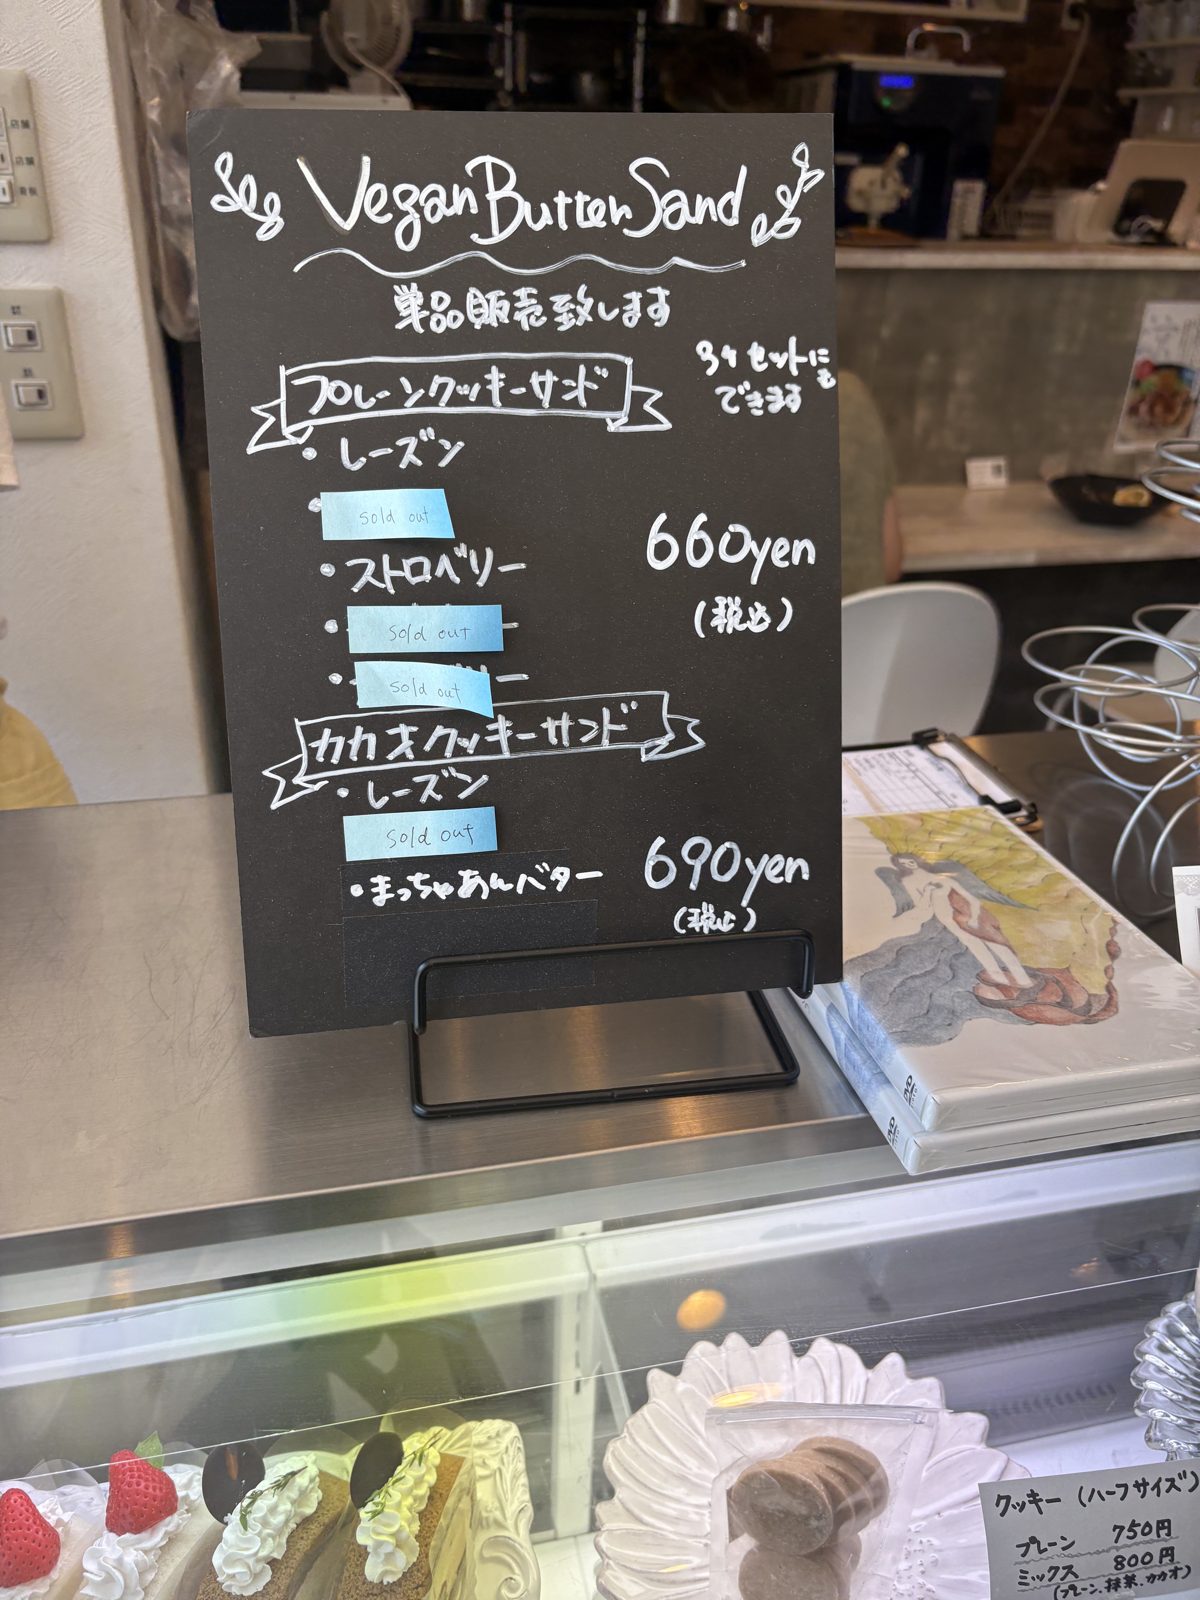 Vegan Butter Sand
単品販売致します
3ケセットにも
できます
プレーンクッキーサンド
・レーズン
・sold out
・ストロベリー
660yen
(税込)
・sold out
・sold out ー
カカオクッキーサンド
・レーズン
sold out
・まっちゃあんバター
690yen
(税込)
店舗
店舗
看板
DVD
DVD
クッキー (ハーフサイズ)
プレーン 750円
ミックス 800円
(プレーン、抹茶、カカオ)